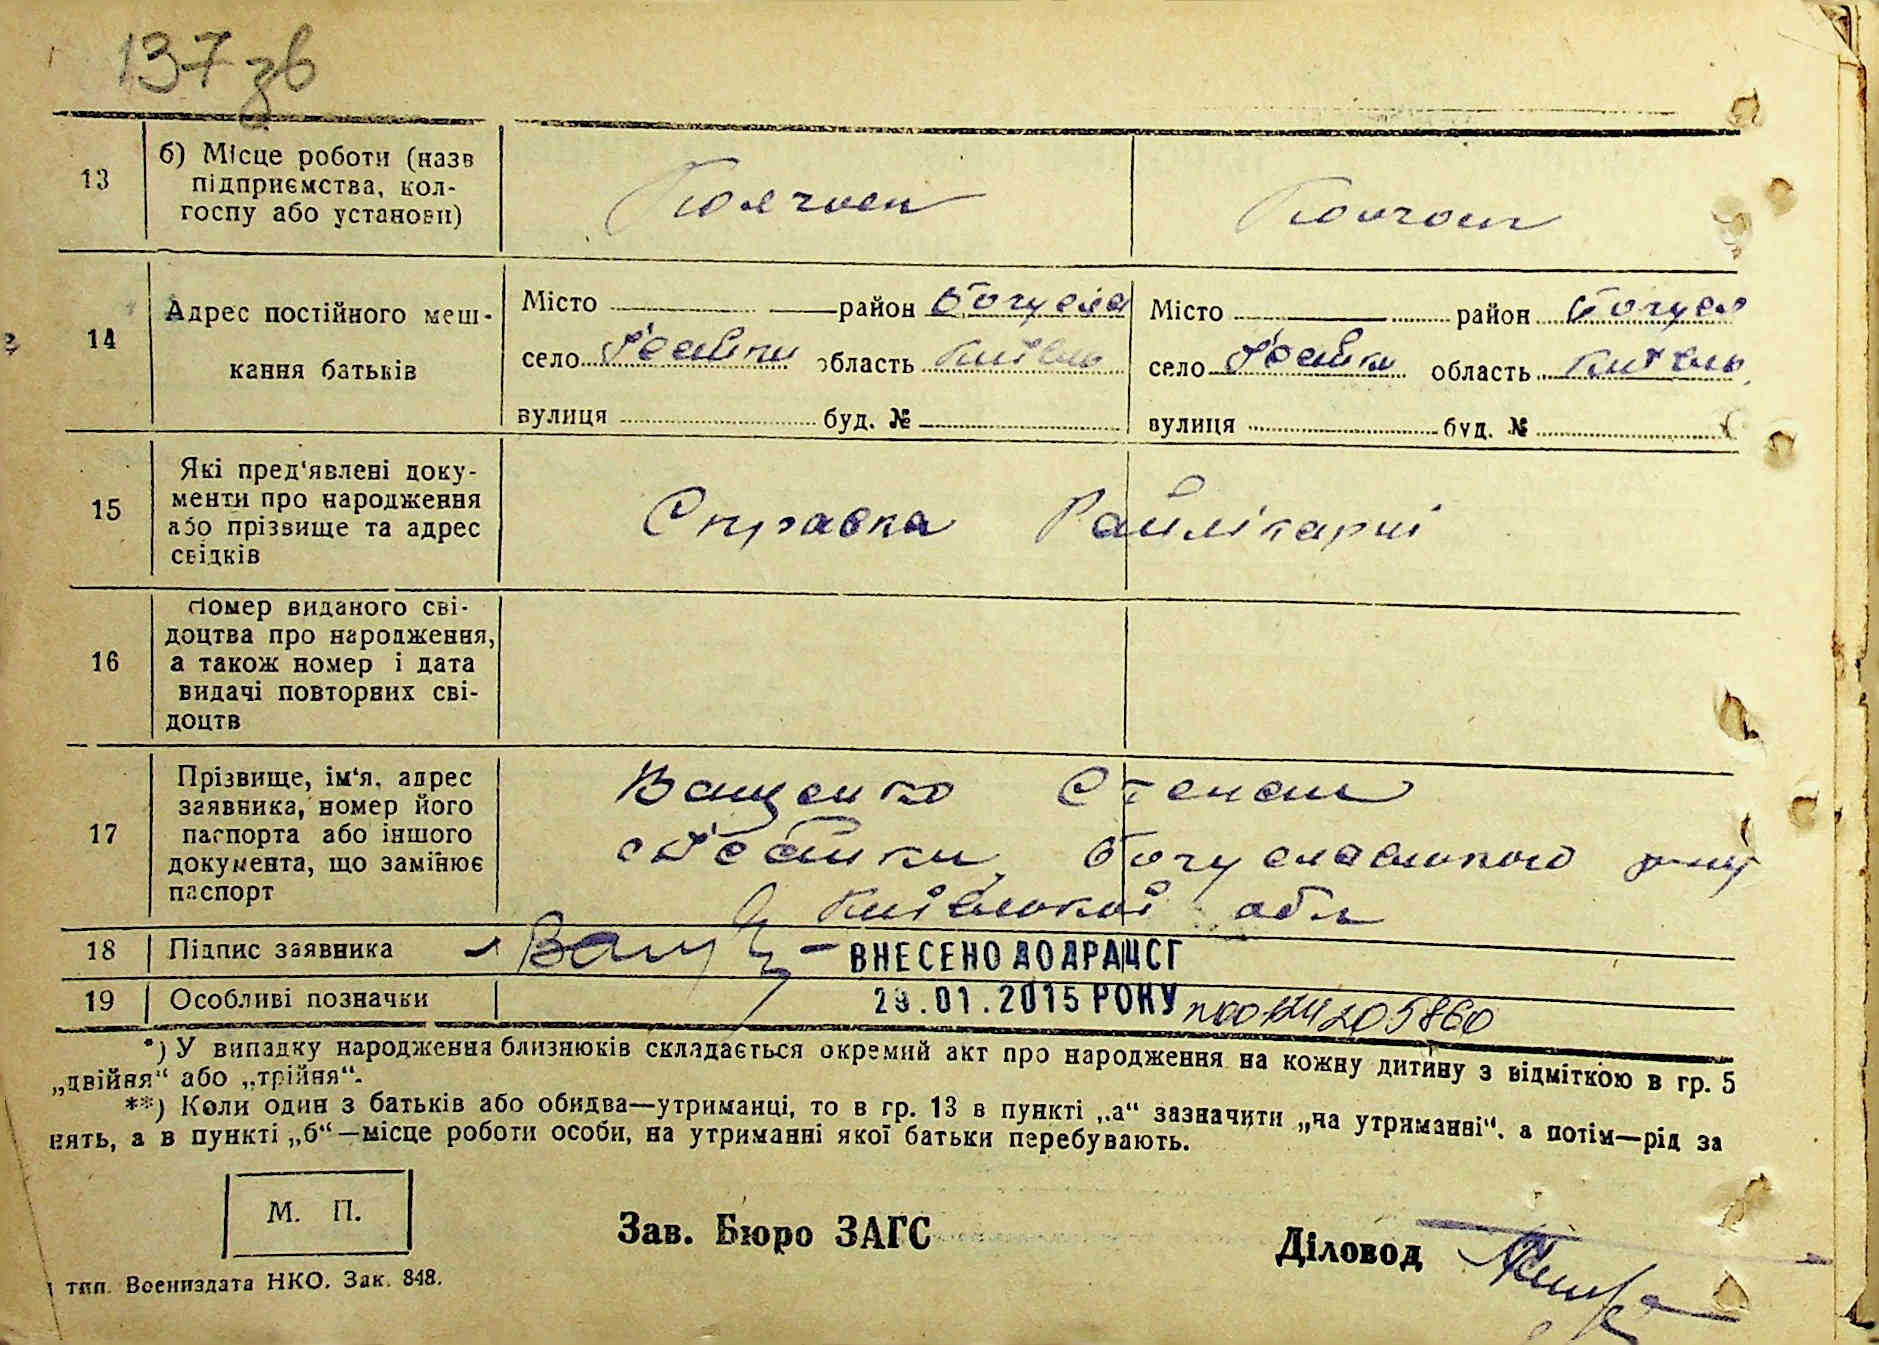 137 зв
13
б) Місце роботи (назв
підприємства, кол-
госпу або установи)
Колгосп
Колгосп
14
Адрес постійного меш-
кання батьків
Місто район Богусла
село область Київськ
вулиця буд. №
Місто район Богусл
село область Київськ
вулиця буд. №
15
Які пред'явлені доку-
менти про народження
або прізвище та адрес
свідків
Справка Райлікарні
16
Номер виданого сві-
доцтва про народження,
а також номер і дата
видачі повторних сві-
доцтв
17
Прізвище, ім'я, адрес
заявника, номер його
паспорта або іншого
документа, що замінює
паспорт
Ващенко Степан
Богуславського р-ну
Київської обл
18
Підпис заявника
Ващ
ВНЕСЕНО ДО ДРАЦСГ
19
Особливі позначки
29.01.2015 РОКУ
*) У випадку народження близнюків складається окремий акт про народження на кожну дитину з відміткою в гр. 5
„двійня" або „трійня".
**) Коли один з батьків або обидва—утриманці, то в гр. 13 в пункті „а" зазначити „на утриманні", а потім—рід за
нять, а в пункті „б"—місце роботи особи, на утриманні якої батьки перебувають.
М. П.
Зав. Бюро ЗАГС
Діловод
тип. Воениздата НКО. Зак. 848.